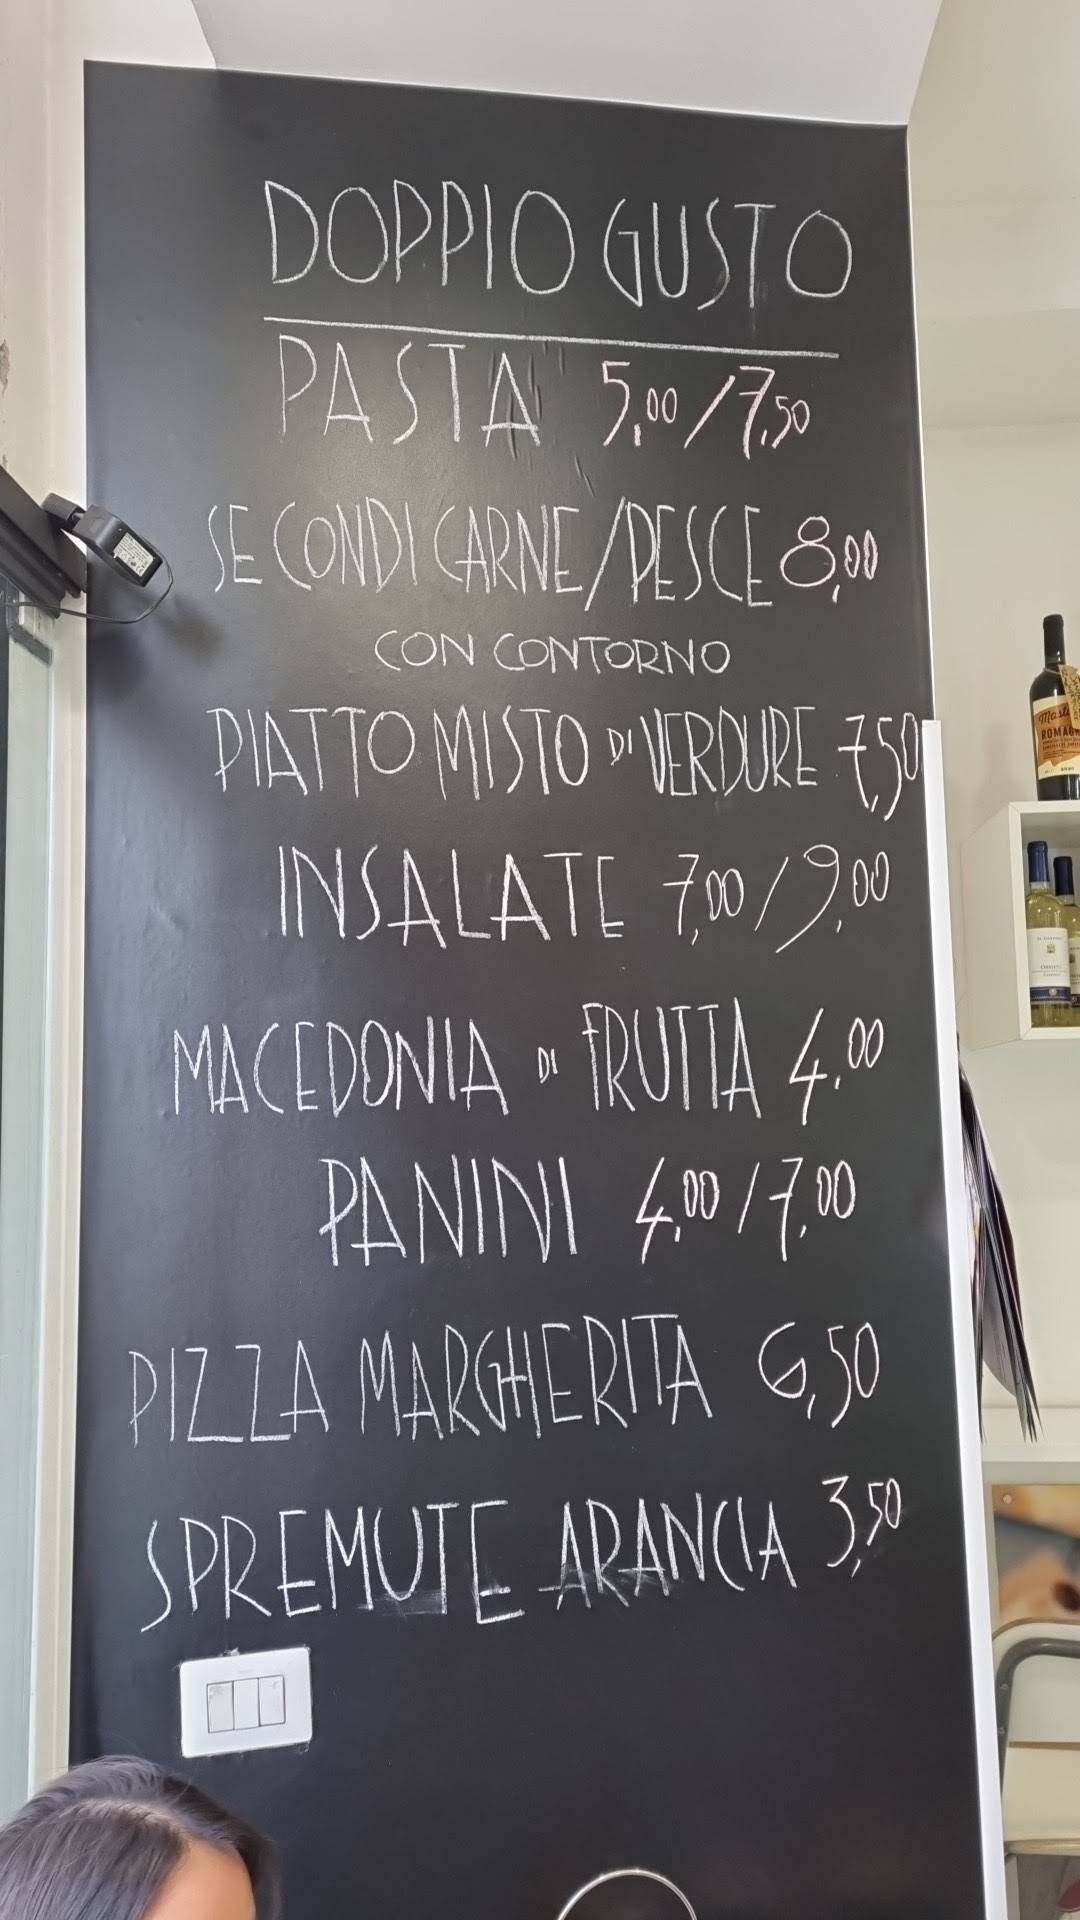 DOPPIO GUSTO
PASTA 5,00/7,50
SECONDI CARNE/PESCE 8,00
CON CONTORNO
PIATTO MISTO DI VERDURE 7,50
INSALATE 7,00/9,00
MACEDONIA DI FRUTTA 4,00
PANINI 4,00/7,00
PIZZA MARGHERITA 6,50
SPREMUTE ARANCIA 3,50